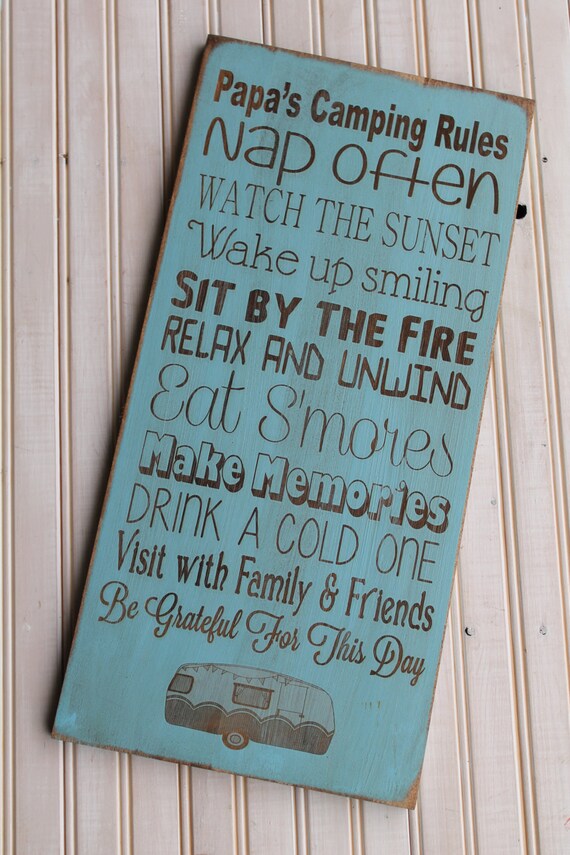 Papa's Camping Rules
Nap often
WATCH THE SUNSET
Wake up smiling
SIT BY THE FIRE
RELAX AND UNWIND
Eat S'mores
Make Memories
DRINK A COLD ONE
Visit with Family & Friends
Be Grateful For This Day